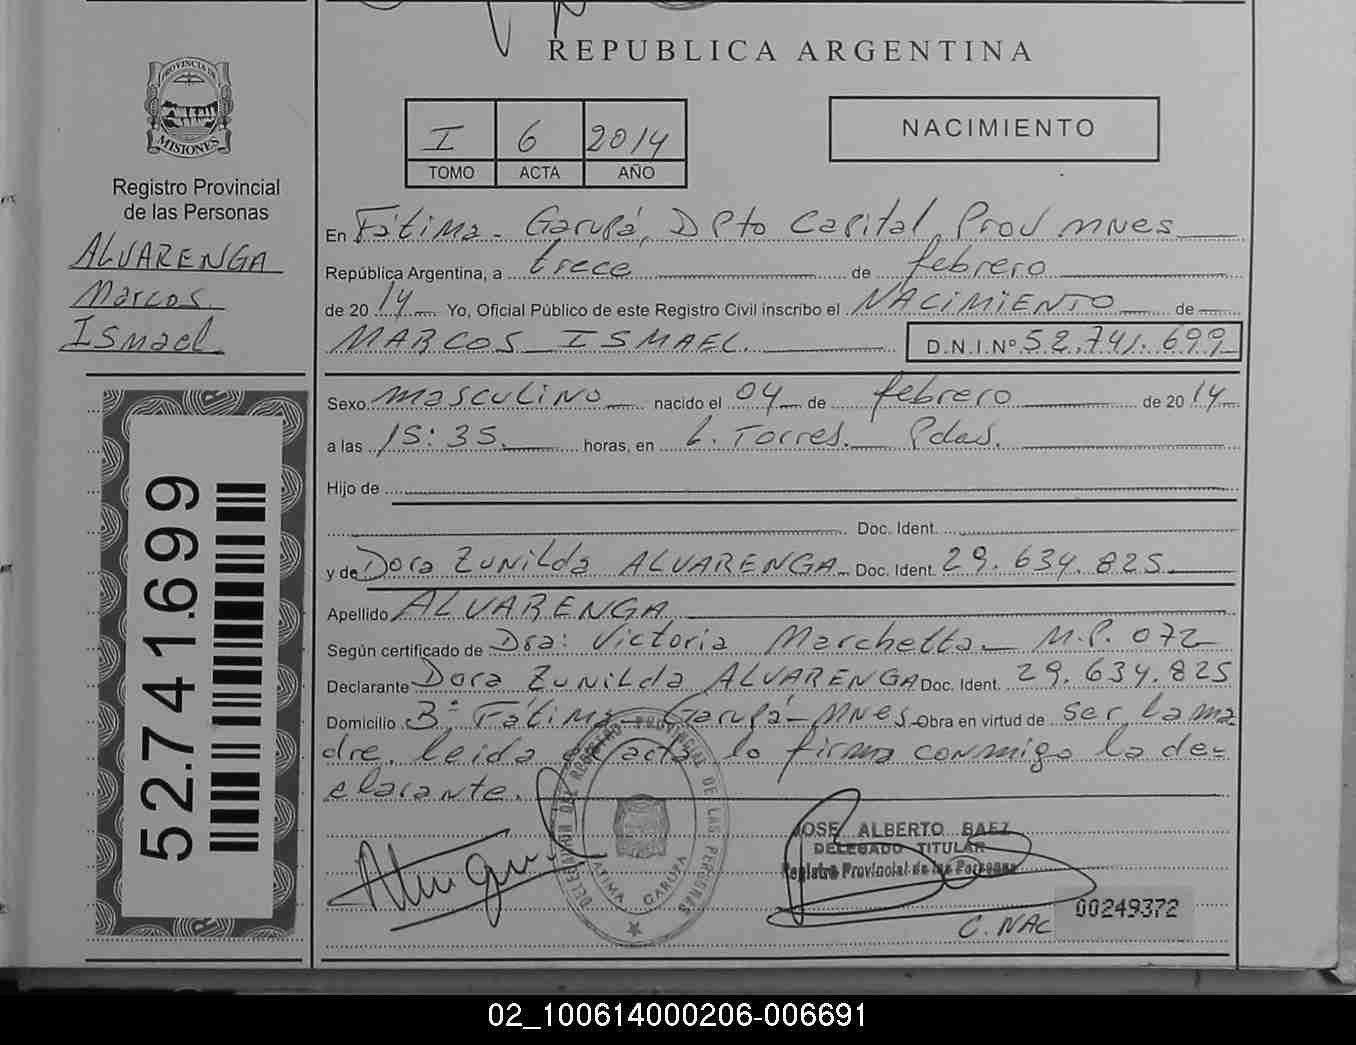 REPUBLICA ARGENTINA
PROVINCIA DE
MISIONES
Registro Provincial
de las Personas
ALVARENGA
Marcos
Ismael
52.741.699
I 6 2014
TOMO ACTA AÑO
NACIMIENTO
En Fátima - Garupá, Dpto Capital, Prov MNES
República Argentina, a trece de febrero
de 2014 Yo, Oficial Público de este Registro Civil inscribo el NACIMIENTO de
MARCOS ISMAEL. D.N.I.Nº 52.741.699
Sexo masculino nacido el 04 de febrero de 2014
a las 15:35. horas, en L. Torres. Pdas.
Hijo de
Doc. Ident.
y de Dora Zunilda ALVARENGA Doc. Ident. 29.634.825.
Apellido ALVARENGA
Según certificado de Dra: Victoria Marchetta M.P. 072
Declarante Dora Zunilda ALVARENGA Doc. Ident. 29.634.825
Domicilio Bº Fátima - Garupá - MNES Obra en virtud de ser la ma
dre, leida el acta lo firma conmigo la de=
clarante.
JOSE ALBERTO BAEZ
DELEGADO TITULAR
Registro Provincial de las Personas
FATIMA GARUPA
C. NAC 00249372
02_100614000206-006691